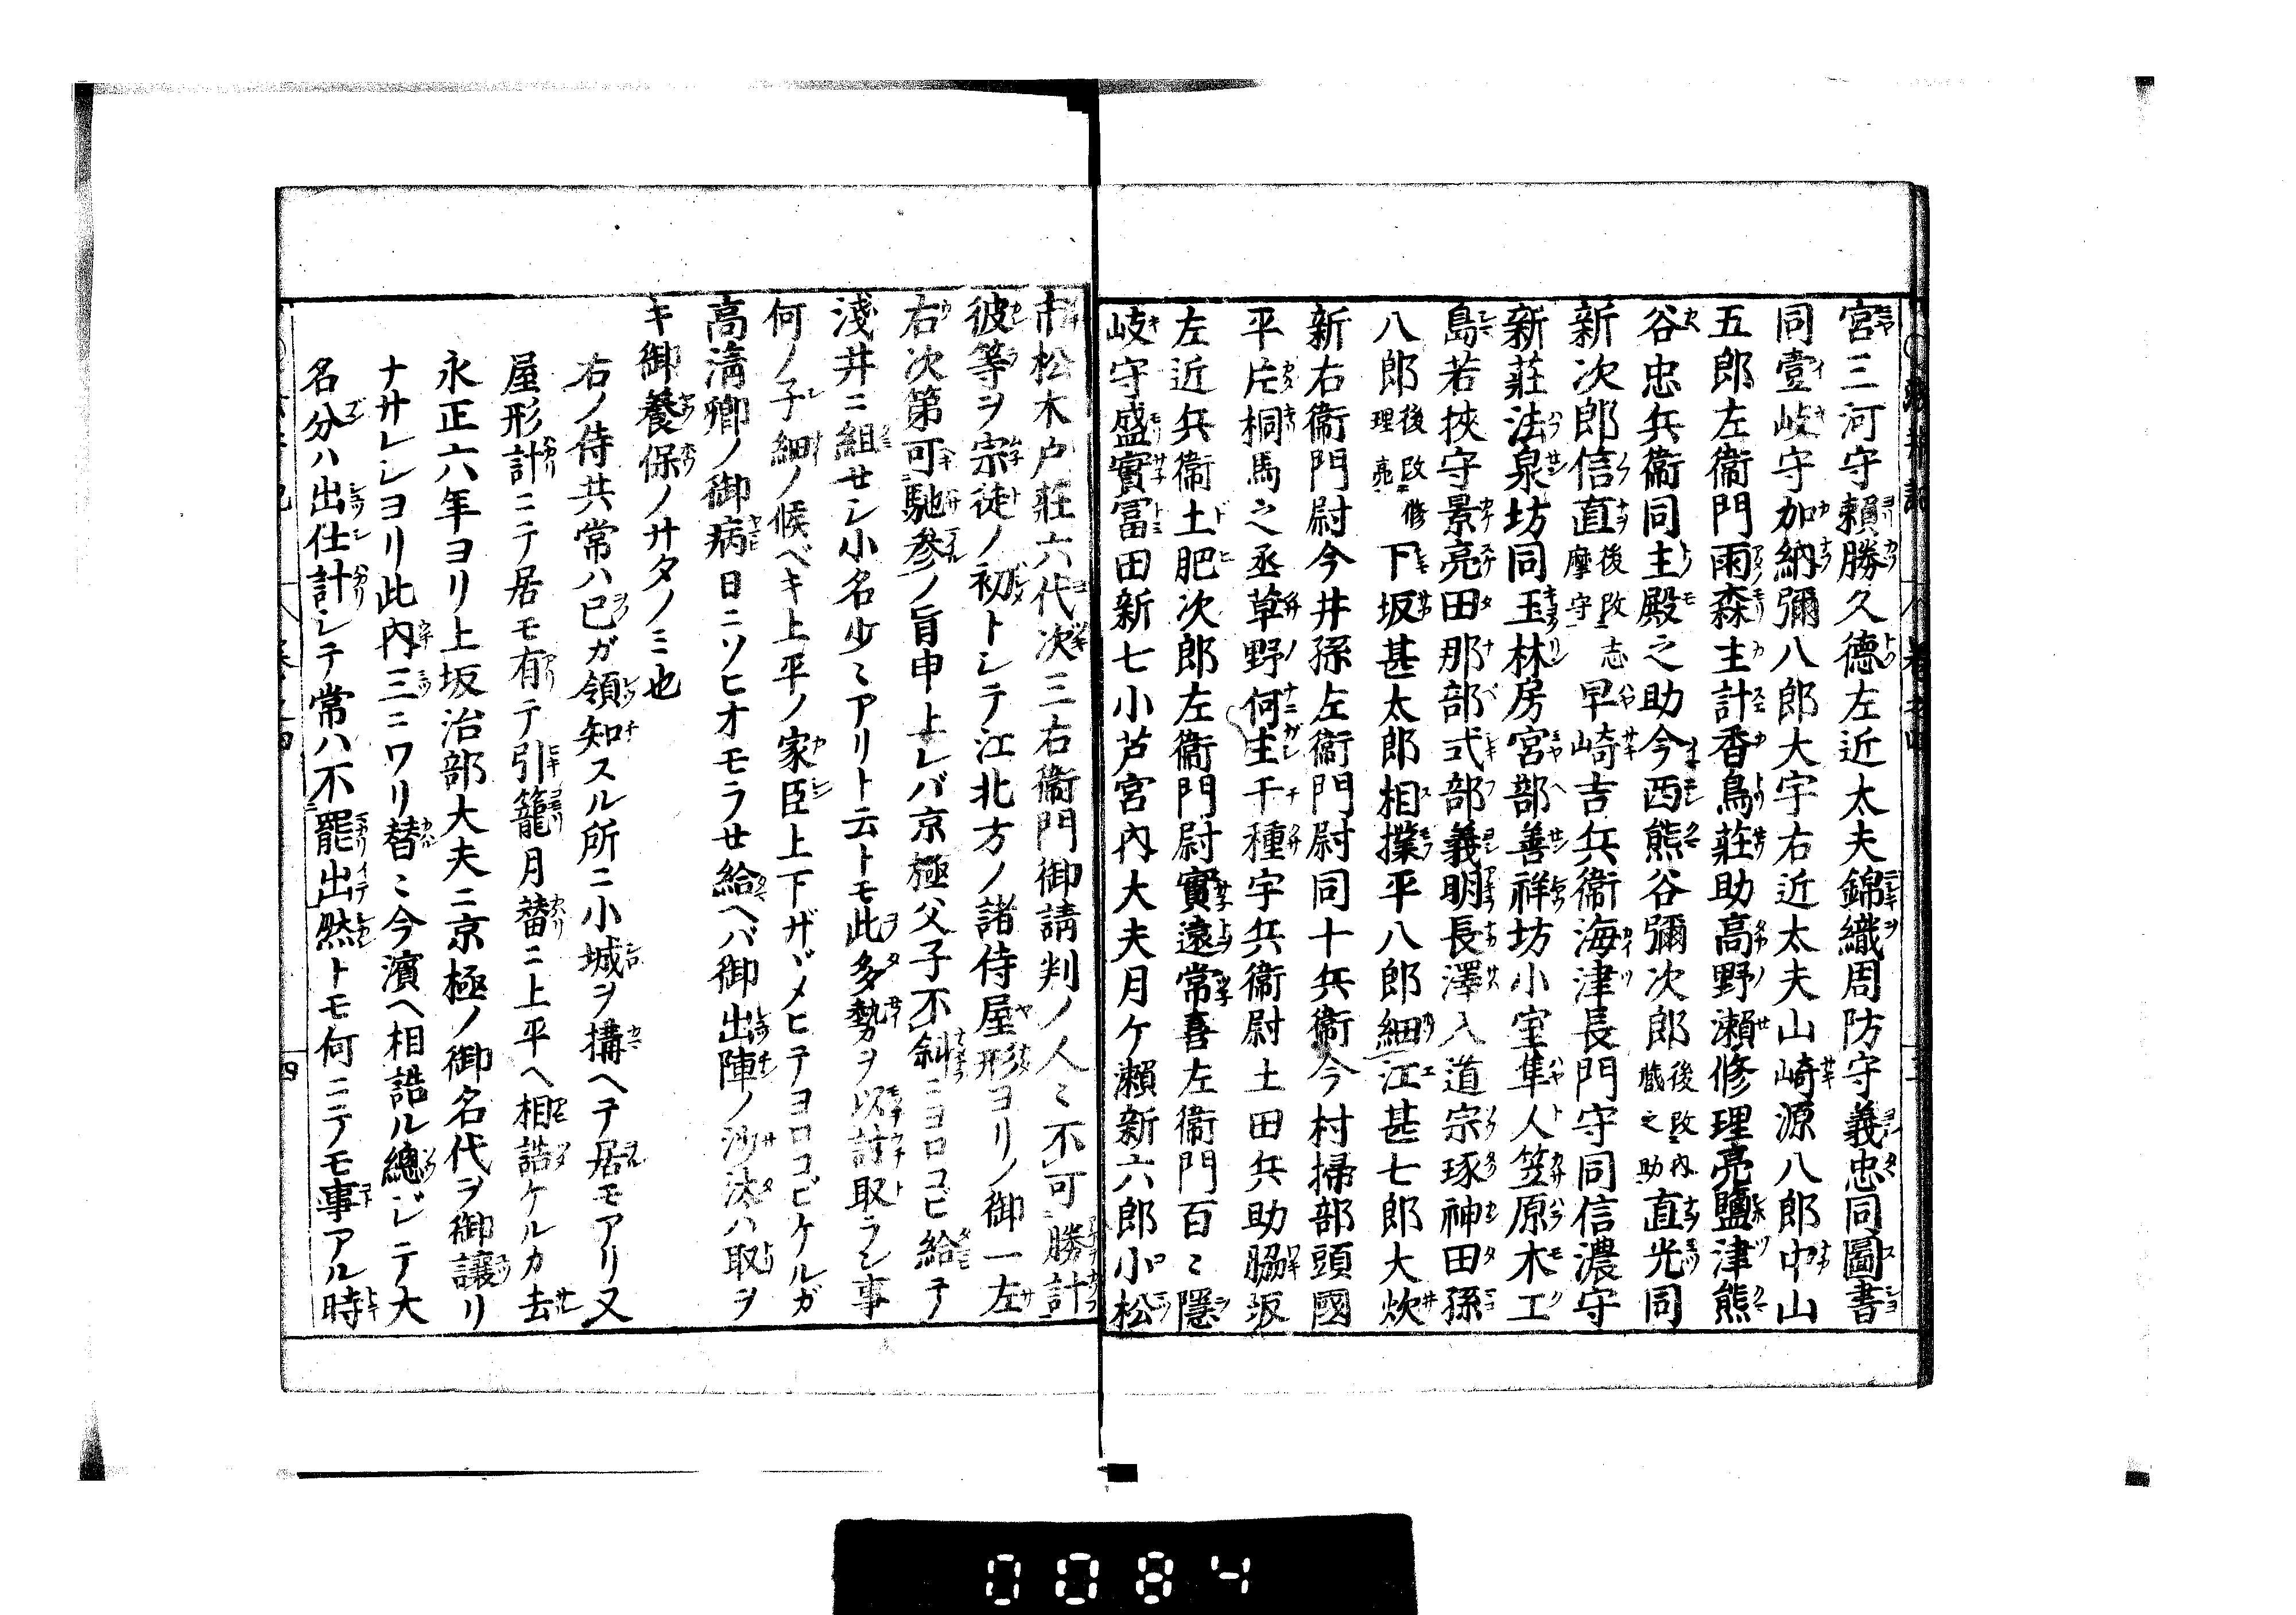 宮三河守賴勝久德左近太夫錦織周防守義忠同圖書
同壹岐守加納彌八郎大宇右近太夫山崎源八郎中山
五郎左衞門雨森主計香鳥莊助高野瀨修理亮鹽津熊
谷忠兵衞同主殿之助今西熊谷彌次郎後改內藏之助直光同
新次郎信直後改志摩守早崎吉兵衞海津長門守同信濃守
新莊法泉坊同玉林房宮部善祥坊小室隼人笠原木工
島若挾守景亮田那部式部義明長澤入道宗琢神田孫
八郎後改修理亮下坂甚太郎相撲平八郎細江甚七郎大炊
新右衞門尉今井孫左衞門尉同十兵衞今村掃部頭國
平片桐馬之丞草野何生千種宇兵衞尉土田兵助脇坂
左近兵衞土肥次郎左衞門尉實遠常喜左衞門百〻隱
岐守盛實冨田新七小芦宮內大夫月ケ瀨新六郎小松
市松木戶莊六代次三右衞門御請判ノ人〻不可勝計
彼等ヲ宗徒ノ初トシテ江北方ノ諸侍屋形ヨリノ御一左
右次第可馳參ノ旨申上レバ京極父子不斜ニヨロコビ給テノ
淺井ニ組セシ小名少〻アリト云トモ此多勢ヲ以討取ラン事
何ノ子細ノ候ベキ上平ノ家臣上下ザヾメヒテヨロコビケルガ
高淸卿ノ御病日ニソヒオモラセ給ヘバ御出陣ノ沙汰ハ取ヲ
キ御養保ノサタノミ也
右ノ侍共常ハ已ガ領知スル所ニ小城ヲ搆ヘテ居モアリ又
屋形計ニテ居モ有テ引籠月替ニ上平ヘ相詰ケルカ去
永正六年ヨリ上坂治部大夫ニ京極ノ御名代ヲ御讓リ
ナサレシヨリ此內三ニワリ替〻今濱ヘ相詰ル總ジテ大
名分ハ出仕計シテ常ハ不罷出然トモ何ニテモ事アル時
四
0084